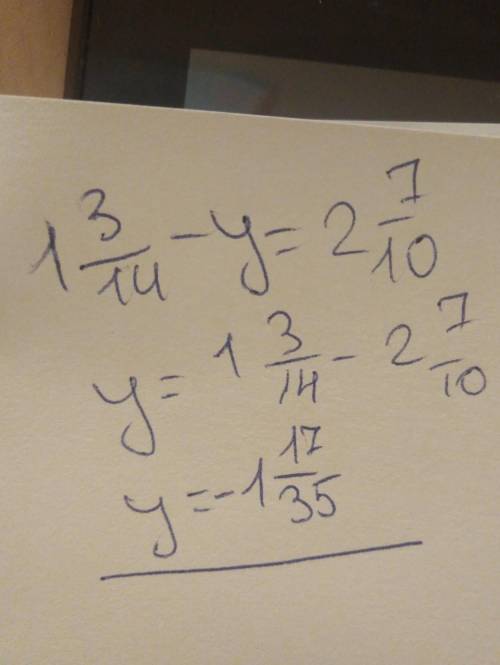 1 3/14 - y = 2 7/10
y = 1 3/14 - 2 7/10
y = -1 17/35